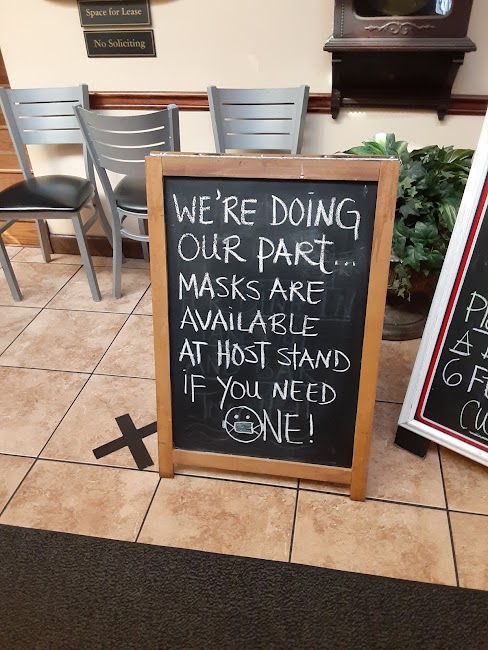 Space for Lease
No Soliciting
WE'RE DOING
OUR PART...
MASKS ARE
AVAILABLE
AT HOST STAND
iF YOU NEED
ONE!
A
6 F